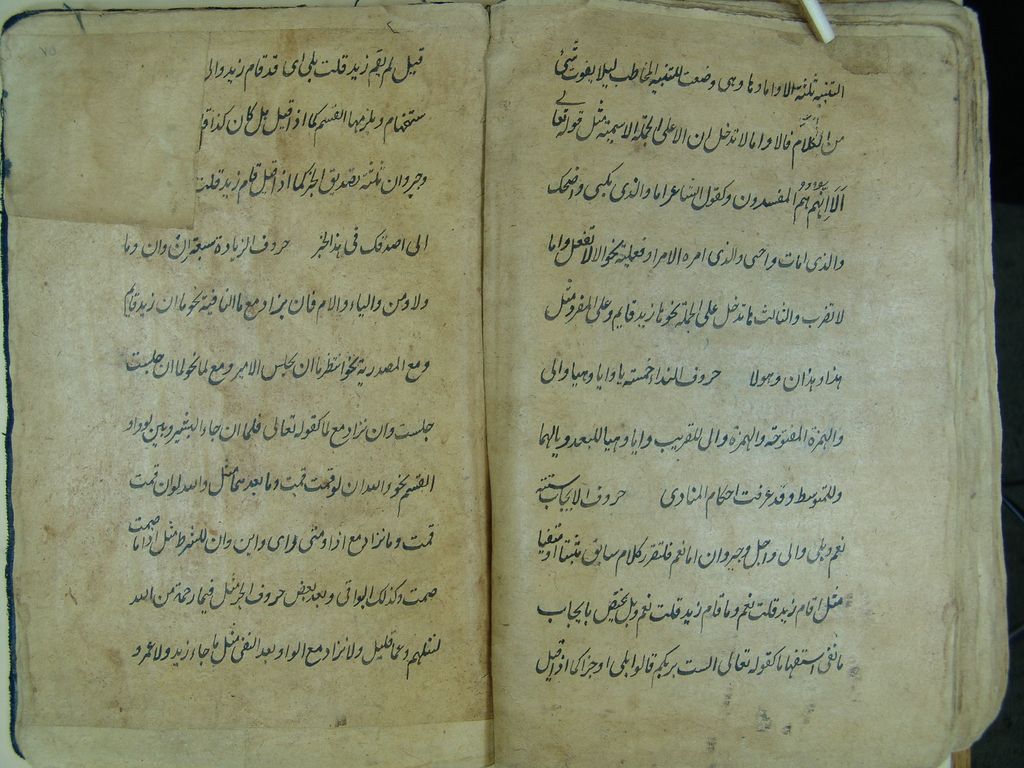 التنبيه ثلثة الا واما وها وهى وضعت للتنبيه المخاطب ليلا يفوت شئ
من الكلام فالا واما لا تدخلان الا على الجملة الاسمية مثل قوله تعالى
اَلَا اِنَّهُمْ هُمُ المفسدون وكقول الشاعر اما والذى يبكى واضحك
والذى امات واحيى والذى امره الامر او فعلية نحو الا لا تفعل واما
لا تضرب والثالث ها تدخل على الجملة نحو ها زيد قايم وعلى المفرد مثل
هذا وهذان وهولا حروف الندا خمسته يا وايا وهيا واى
والهمزة المفتوحة والهمزة واى للقريب وايا وهيا للبعد ويا لهما
وللمتوسط وقد عرفت احكام المنادى حروف الايجاب ستة
نعم وبلى واى واجل وجير وان اما نعم فلتقرير كلام سابق مثبتا او منفيا
مثل اقام زيد قلت نعم وما قام زيد قلت نعم وبلى يختص بايجاب
ما نفى استفهاما كقوله تعالى الست بربكم قالوا بلى او خبرا كما اذا قيل
قيل لم يقم زيد قلت بلى اى قد قام زيد واى
ستفهام ويلزمها القسم كما اذا قيل هل كان كذا
وجير وان ثلثة تصديق الخبر كما اذا قيل قام زيد قلت
اى اصدقك فى هذا الخبر حروف الزيادة سبعة ان وان وما
ولا ومن والباء واللام فان يزاد مع ما النافية نحو ما ان زيد قايم
ومع المصدرية نحو انتظر ما ان يجلس الامير ومع لما نحو لما ان جلست
جلست وان تزاد مع لما كقوله تعالى فلما ان جاء البشير وبين لو وواو
القسم نحو والله ان لو قمت قمت وما بعدهما مثل والله لو ان قمت
قمت وما تزاد مع اذا ومتى واى واين وان للشرط مثل اذا ما صمت
صمت وكذلك البواقى وبعد بعض حروف الجر مثل فبما رحمة من الله
لنت لهم وعما قليل ولا تزاد مع الواو بعد النفى مثل ما جاء زيد ولا عمرو